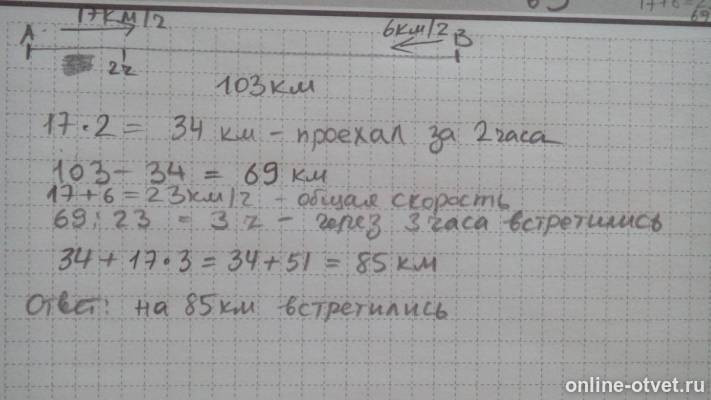 17км/ч
А
6км/ч
В
2ч
103км
17·2= 34 км - проехал за 2 часа
103 - 34 = 69 км
17+6=23км/ч - общая скорость
69:23 = 3 ч - через 3 часа встретились
34 + 17·3 = 34+51 = 85 км
Ответ: на 85км встретились
online-otvet.ru